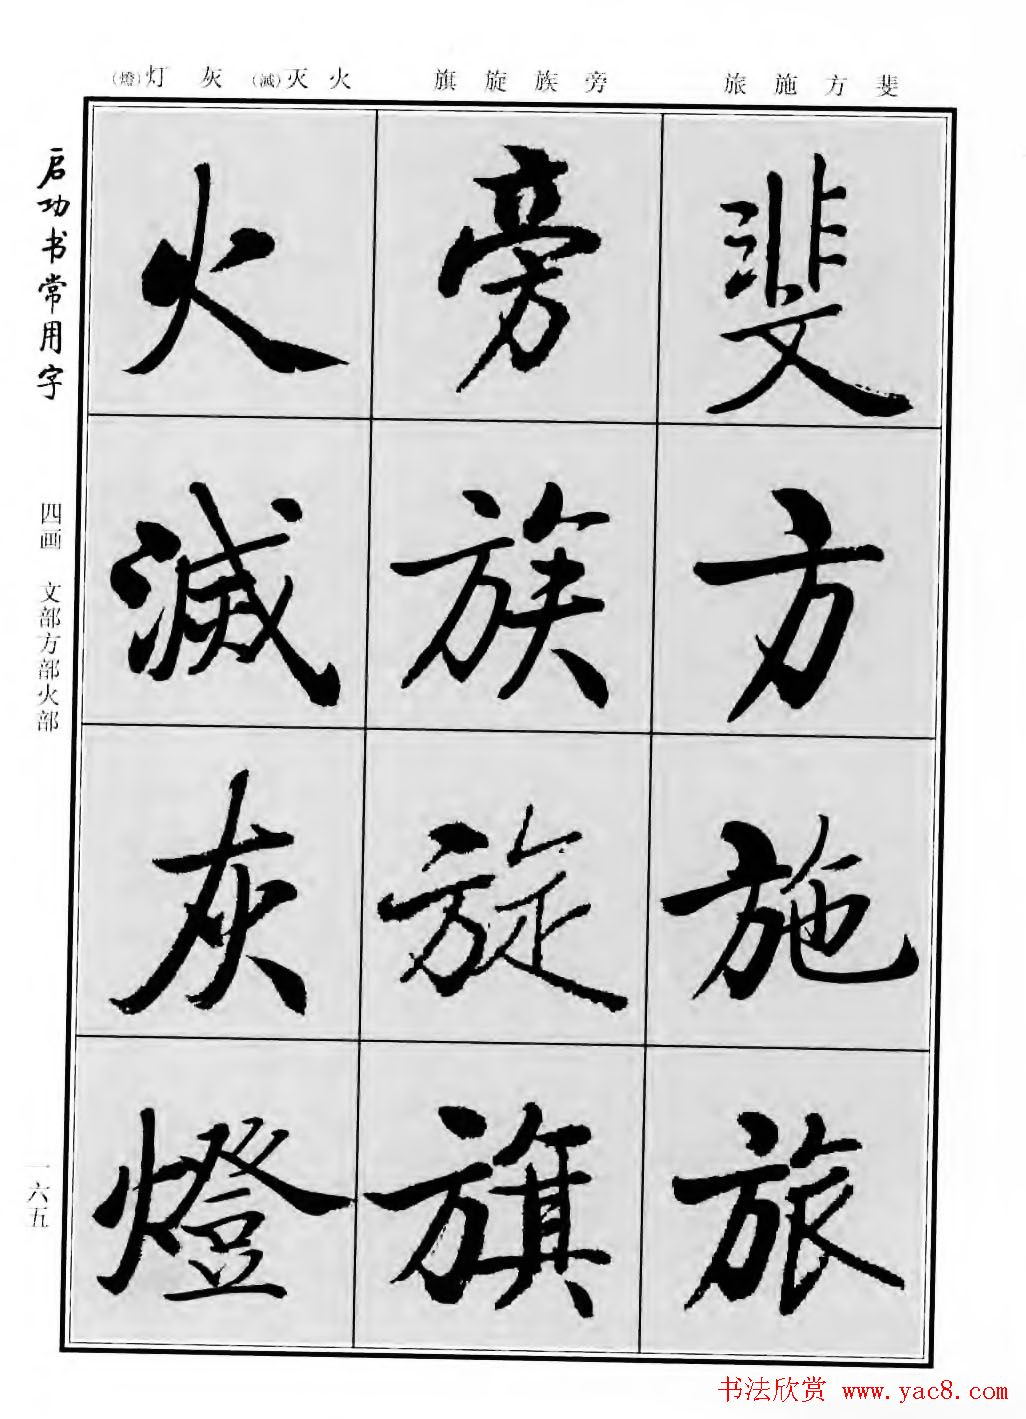 斐方施旅
旁族旋旗
火灭(滅)灰灯(燈)
斐
方
施
旅
旁
族
旋
旗
火
滅
灰
燈
启功书常用字
四画 文部方部火部
一六五
书法欣赏 www.yac8.com